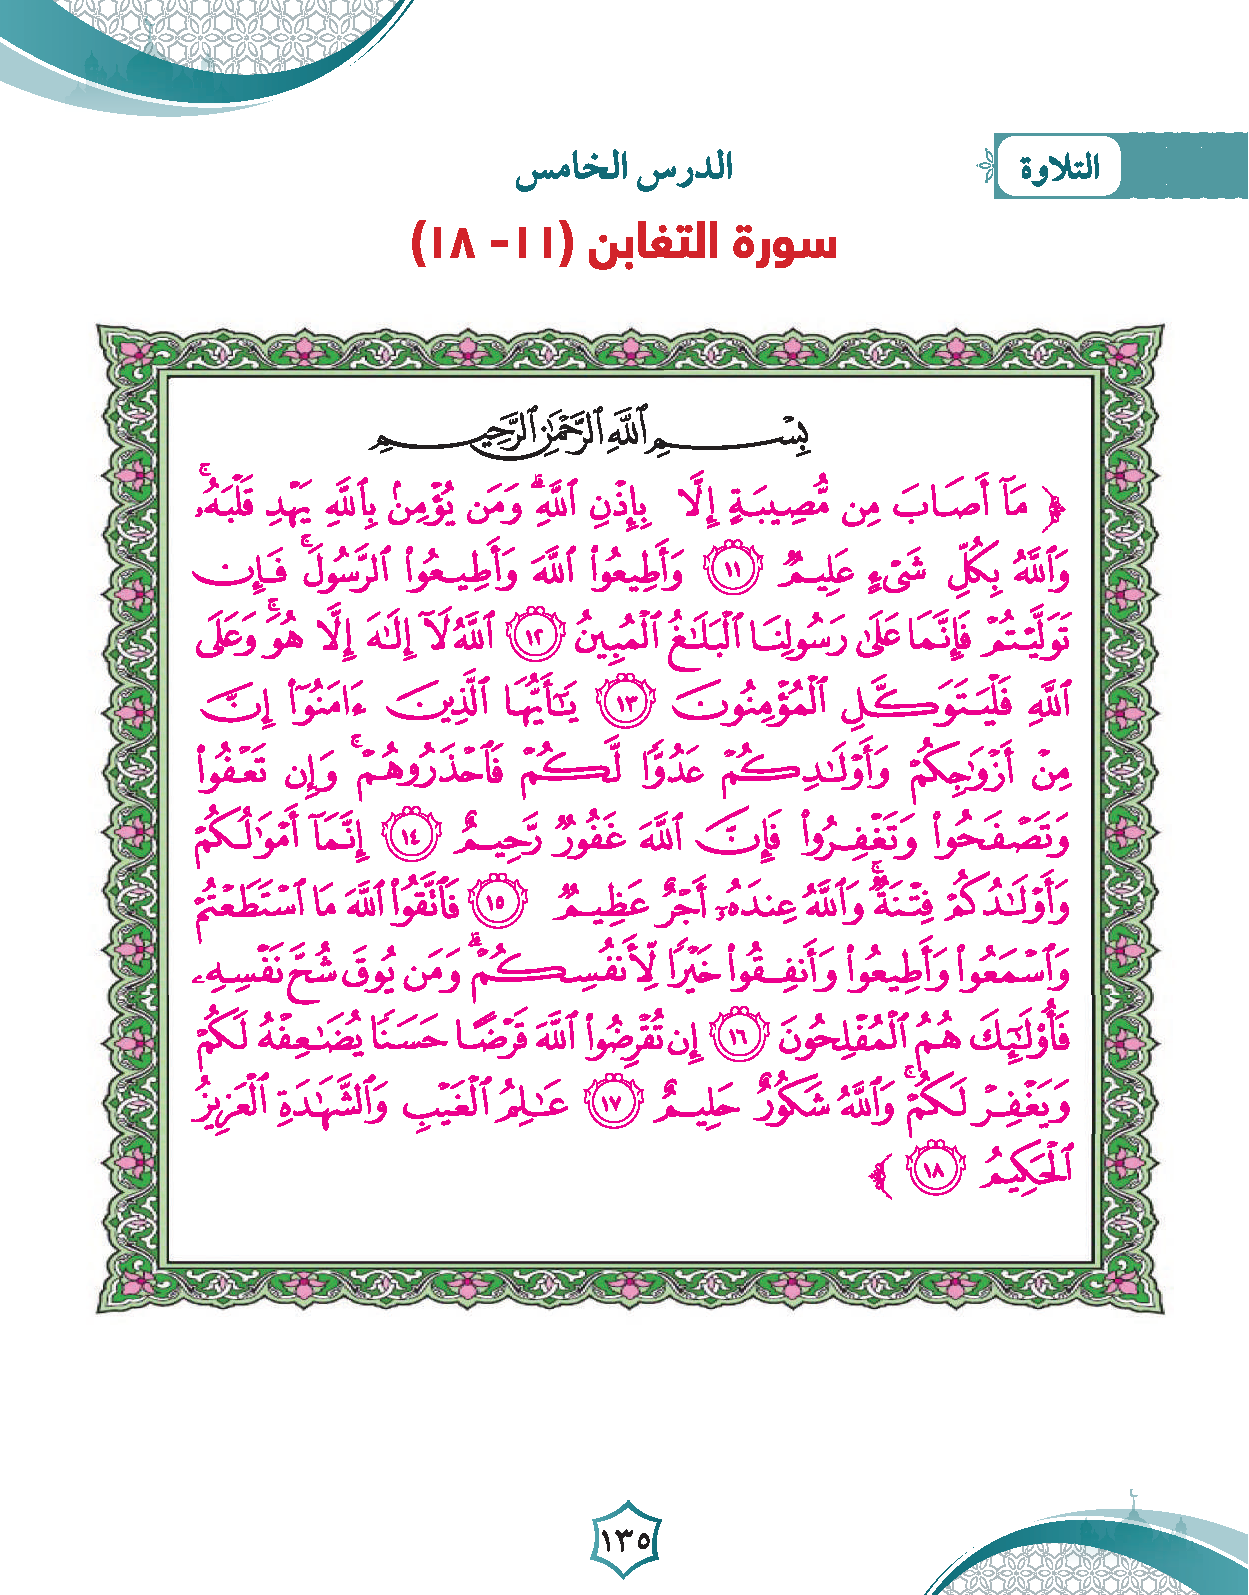 التلاوة
الدرس الخامس
سورة التغابن (١١- ١٨)
بِسْمِ ٱللَّهِ ٱلرَّحْمَٰنِ ٱلرَّحِيمِ
﴿ مَآ أَصَابَ مِن مُّصِيبَةٍ إِلَّا بِإِذْنِ ٱللَّهِ ۗ وَمَن يُؤْمِنۢ بِٱللَّهِ يَهْدِ قَلْبَهُۥ ۚ
وَٱللَّهُ بِكُلِّ شَىْءٍ عَلِيمٌ ١١ وَأَطِيعُوا۟ ٱللَّهَ وَأَطِيعُوا۟ ٱلرَّسُولَ ۚ فَإِن
تَوَلَّيْتُمْ فَإِنَّمَا عَلَىٰ رَسُولِنَا ٱلْبَلَٰغُ ٱلْمُبِينُ ١٢ ٱللَّهُ لَآ إِلَٰهَ إِلَّا هُوَ ۚ وَعَلَى
ٱللَّهِ فَلْيَتَوَكَّلِ ٱلْمُؤْمِنُونَ ١٣ يَٰٓأَيُّهَا ٱلَّذِينَ ءَامَنُوٓا۟ إِنَّ
مِنْ أَزْوَٰجِكُمْ وَأَوْلَٰدِكُمْ عَدُوًّا لَّكُمْ فَٱحْذَرُوهُمْ ۚ وَإِن تَعْفُوا۟
وَتَصْفَحُوا۟ وَتَغْفِرُوا۟ فَإِنَّ ٱللَّهَ غَفُورٌ رَّحِيمٌ ١٤ إِنَّمَآ أَمْوَٰلُكُمْ
وَأَوْلَٰدُكُمْ فِتْنَةٌ ۚ وَٱللَّهُ عِندَهُۥٓ أَجْرٌ عَظِيمٌ ١٥ فَٱتَّقُوا۟ ٱللَّهَ مَا ٱسْتَطَعْتُمْ
وَٱسْمَعُوا۟ وَأَطِيعُوا۟ وَأَنفِقُوا۟ خَيْرًا لِّأَنفُسِكُمْ ۗ وَمَن يُوقَ شُحَّ نَفْسِهِۦ
فَأُو۟لَٰٓئِكَ هُمُ ٱلْمُفْلِحُونَ ١٦ إِن تُقْرِضُوا۟ ٱللَّهَ قَرْضًا حَسَنًا يُضَٰعِفْهُ لَكُمْ
وَيَغْفِرْ لَكُمْ ۚ وَٱللَّهُ شَكُورٌ حَلِيمٌ ١٧ عَٰلِمُ ٱلْغَيْبِ وَٱلشَّهَٰدَةِ ٱلْعَزِيزُ
ٱلْحَكِيمُ ١٨ ﴾
١٣٥